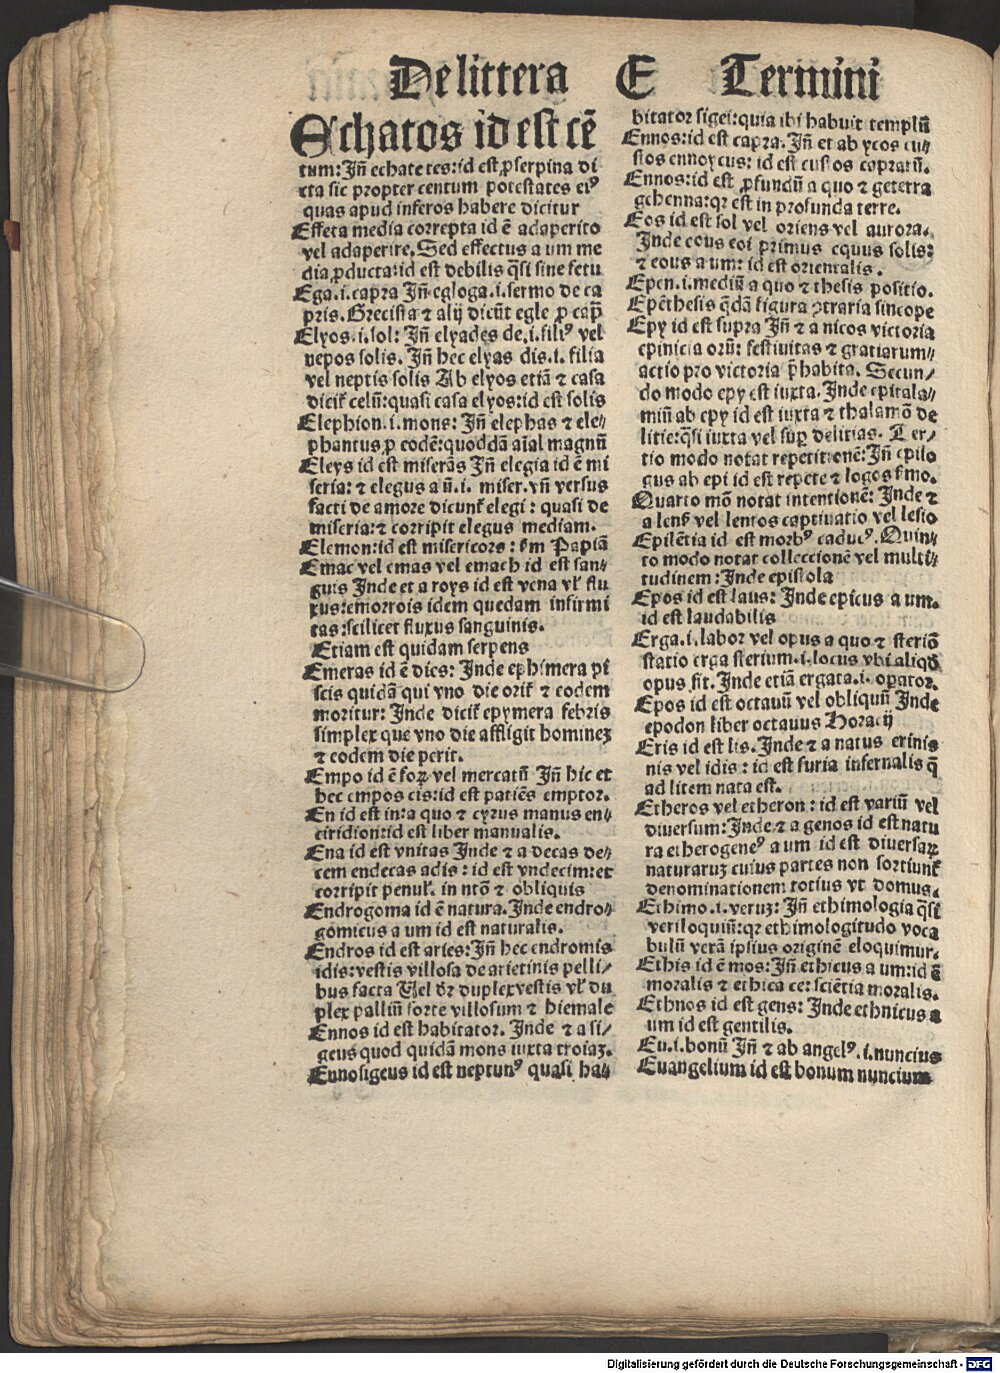 De littera E Termini
Echatos id est cē
tum: Jn̄ echate tes: id est ꝓserpina di
cta sic propter centum potestates eiꝰ
quas apud inferos habere dicitur
Effeta media correpta id ē adaperito
vel adaperire. Sed effectus a um me
dia ꝓducta: id est debilis q̄si sine fetu
Ega .i. capra Jn̄ egloga .i. sermo de ca
pris. Grecista ⁊ alij dicūt egle ꝓ cap̄
Elyos .i. sol: Jn̄ elyades de .i. filiꝰ vel
nepos solis. Jn̄ hec elyas dis .i. filia
vel neptis solis Ab elyos etiā ⁊ casa
dicit̄ celū: quasi casa elyos: id est solis
Elephion .i. mons: Jn̄ elephas ⁊ ele⸗
phantus ꝓ eodē: quoddā aīal magnū
Eleys id est miserās Jn̄ elegia id ē mi
seria: ⁊ elegus a ū .i. miser. vn̄ versus
facti de amore dicunt̄ elegi: quasi de
miseria: ⁊ corripit elegus mediam.
Elemon: id est misericors: s̄m Papiā
Emac vel emas vel emach id est san⸗
guis Inde et a roys id est vena vl̄ flu
xus: emorrois idem quedam infirmi
tas: scilicet fluxus sanguinis.
Etiam est quidam serpens
Emeras id ē dies: Inde ephimera pi
scis quidā qui vno die orit̄ ⁊ eodem
moritur: Inde dicit̄ epymera febris
simplex que vno die affligit hominez
⁊ eodem die perit.
Empo id ē foꝝ vel mercatū Jn̄ hic et
hec empos cis: id est patiēs emptor.
En id est in: a quo ⁊ cyrus manus en⸗
ciridion: id est liber manualis.
Ena id est vnitas Inde ⁊ a decas de⸗
cem endecas adis: id est vndecim: et
corripit penul̄. in ntō ⁊ obliquis
Endrogoma id ē natura. Inde endro⸗
gomicus a um id est naturalis.
Endros id est aries: Jn̄ hec endromis
idis: vestis villosa de arietinis pelli⸗
bus facta Uel dr̄ duplex vestis vl̄ du
plex palliū forte villosum ⁊ hiemale
Ennos id est habitator. Inde ⁊ a si⸗
geus quod quidā mons iuxta troiaz.
Ennosigeus id est neptunꝰ quasi ha⸗
bitator sigei: quia ibi habuit templū
Ennos: id est capra. Jn̄ et ab ycos cu⸗
stos ennoycus: id est custos capraꝝ.
Ennos: id est ꝓfundū a quo ⁊ ge terra
gehenna: qr est in profunda terre.
Eos id est sol vel oriens vel aurora.
Inde eous eoi primus equus solis:
⁊ eous a um: id est orientalis.
Epen .i. mediū a quo ⁊ thesis positio.
Epēthesis q̄dā figura ꝯtraria sincope
Epy id est supra Jn̄ ⁊ a nicos victoria
epinicia orū: festiuitas ⁊ gratiarum⸗
actio pro victoria p̄habita. Secun⸗
do modo epy est iuxta. Inde epitala⸗
miū ab epy id est iuxta ⁊ thalamō de
litie: q̄si iuxta vel suꝑ delitias. Ter⸗
tio modo notat repetitionē: Jn̄ epilo
gus ab epi id est repete ⁊ logos s̄mo.
Quarto mō notat intentionē: Inde ⁊
a lens̄ vel lentos captiuatio vel lesio
Epilētia id est morbꝰ caducꝰ. Quin⸗
to modo notat colleccionē vel multi⸗
tudinem: Inde epistola
Epos id est laus: Inde epicus a um.
id est laudabilis
Erga .i. labor vel opus a quo ⁊ steriō
statio erga sterium .i. locus vbi aliqd̄
opus fit. Inde etiā ergata .i. oꝑator.
Epos id est octauū vel obliquū Inde
epodon liber octauus Horacij
Eris id est lis. Inde ⁊ a natus erinis
nis vel idis: id est furia infernalis q̄
ad litem nata est.
Etheros vel etheron: id est variū vel
diuersum: Inde ⁊ a genos id est natu
ra etherogeneꝰ a um id est diuersaꝝ
naturaruz cuius partes non sortiunt̄
denominationem totius vt domus.
Ethimo .i. veruz: Jn̄ ethimologia q̄si
veriloquiū: qr ethimologitudo voca
bulū verā ipsius originē eloquimur.
Ethis id ē mos: Jn̄ ethicus a um: id ē
moralis ⁊ ethica ce: sciētia moralis.
Ethnos id est gens: Inde ethnicus a
um id est gentilis.
Eu .i. bonū Jn̄ ⁊ ab angelꝰ .i. nuncius
Euangelium id est bonum nuncium
Digitalisierung gefördert durch die Deutsche Forschungsgemeinschaft - DFG